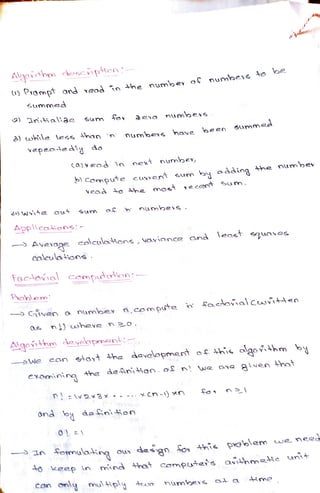 Algorithm description:-
(1) Prompt and read in the number of numbers to be
summed
2) Initialize sum for zero numbers.
3) while less than 'n' numbers have been summed
repeatedly do
(a) read in next number,
b) Compute current sum by adding the number
read to the most recent sum.
4) Write out sum of n numbers.
Applications:-
→ Average calculations, variance and least squares
calculations.
Factorial computation:-
Problem:
→ Given a number n, compute n factorial (written
as n!) where n≥0.
Algorithm development:-
→ We can start the development of this algorithm by
examining the definition of n! we are given that
n! = 1×2×3×.....×(n-1)×n for n≥1
and by definition
0! = 1
→ In formulating our design for this problem we need
to keep in mind that computer's arithmetic unit
can only multiply two numbers at a time.